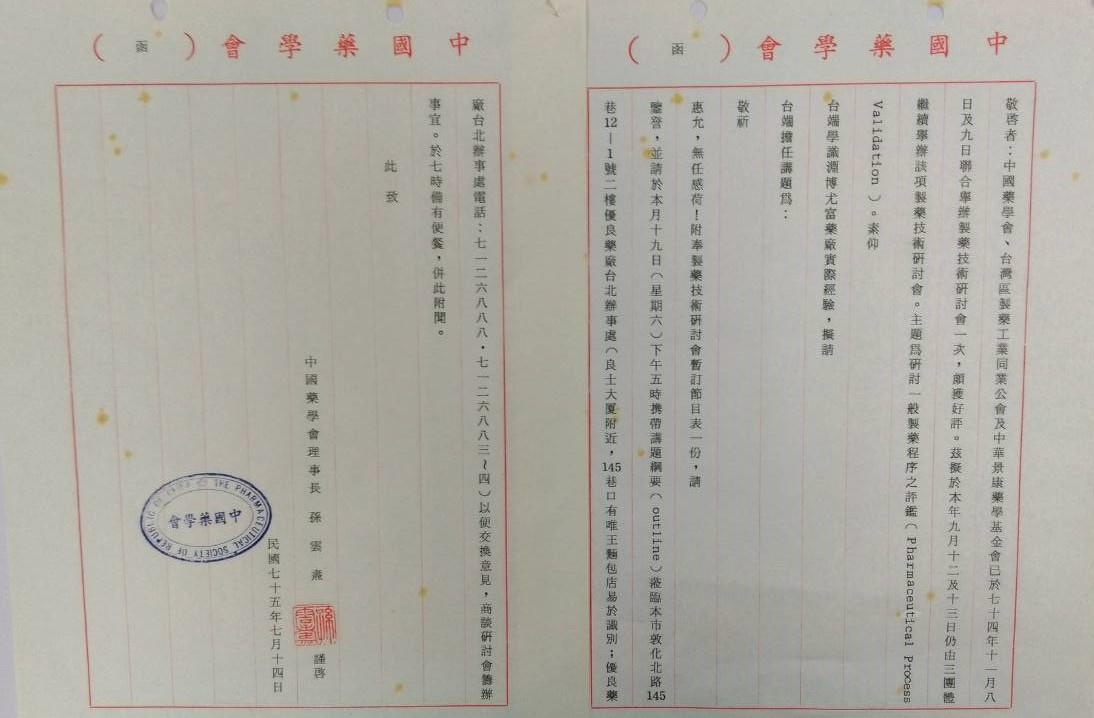 中國藥學會（函）
敬啓者：中國藥學會、台灣區製藥工業同業公會及中華景康藥學基金會已於七十四年十一月八
日及九日聯合舉辦製藥技術研討會一次，頗獲好評。茲擬於本年九月十二及十三日仍由三團體
繼續舉辦該項製藥技術研討會。主題爲研討一般製藥程序之評鑑（Pharmaceutical Process
Validation）。素仰
台端學識淵博尤富藥廠實際經驗，擬請
台端擔任講題爲：
敬祈
惠允，無任感荷！附奉製藥技術研討會暫訂節目表一份，請
鑒詧，並請於本月十九日（星期六）下午五時携帶講題綱要（outline）蒞臨本市敦化北路145
巷12—1號二樓優良藥廠台北辦事處（良士大厦附近，145巷口有唯王麵包店易於識別；優良藥
中國藥學會（函）
廠台北辦事處電話：七一二六八八八·七一二六八八三～四）以便交換意見，商談研討會籌辦
事宜。於七時備有便餐，併此附聞。
此致
中國藥學會理事長 孫雲燾 謹啓
孫雲燾
民國七十五年七月十四日
THE PHARMACEUTICAL SOCIETY OF REPUBLIC OF
中國藥學會